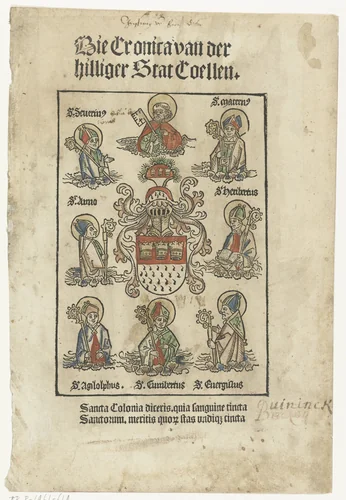 Die Cronica van der
hilliger Stat Coellen.
S. Severinus
S. Maternus
S. Anno
S. Heribertus
S. Agilolphus. S. Cunibertus S. Evergislus
Sancta Colonia diceris, quia sanguine tincta
Sanctorum, meritis quorum stas undique cincta
Quininck